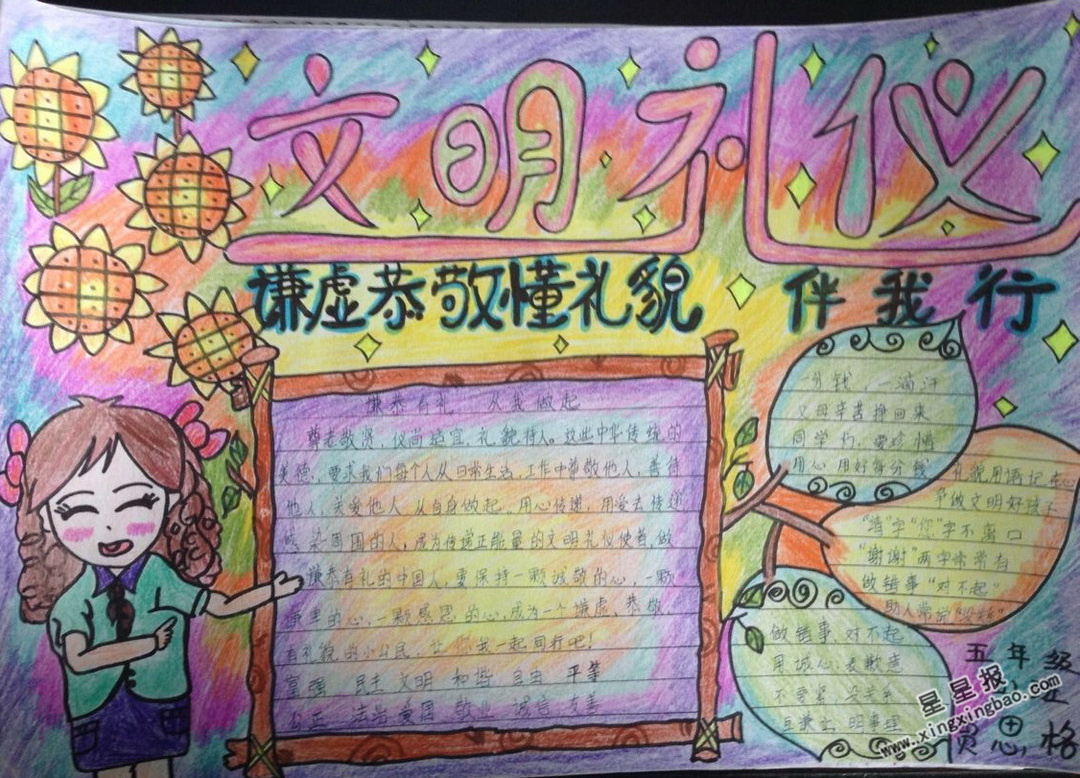 文明礼仪
谦虚恭敬懂礼貌 伴我行
谦恭有礼 从我做起
尊老敬贤,仪尚适宜,礼貌待人。这些中华传统的
美德,要求我们每个人从日常生活,工作中尊敬他人,善待
他人,关爱他人,从自身做起,用心传递,用爱去传递
感染周围的人,成为传递正能量的文明礼仪使者,做
谦恭有礼的中国人,要保持一颗诚敬的心,一颗
的心,一颗感恩的心,成为一个谦虚、恭敬、
有礼貌的小公民,让你我一起同行吧!
富强 民主 文明 和谐 自由 平等
公正 法治 爱国 敬业 诚信 友善
一分钱,一滴汗
父母辛苦挣回来
同学们,要珍惜
用心用好每分钱
礼貌用语记在心
争做文明好孩子
“请”字“你”字不离口
“谢谢”两字常常有
做错事“对不起”
助人常说“没关系”
做错事 对不起
用诚心 表歉意
不要紧 没关系
互兼出 明事理
五年级
贺思 格
星星报
www.xingxingbao.com